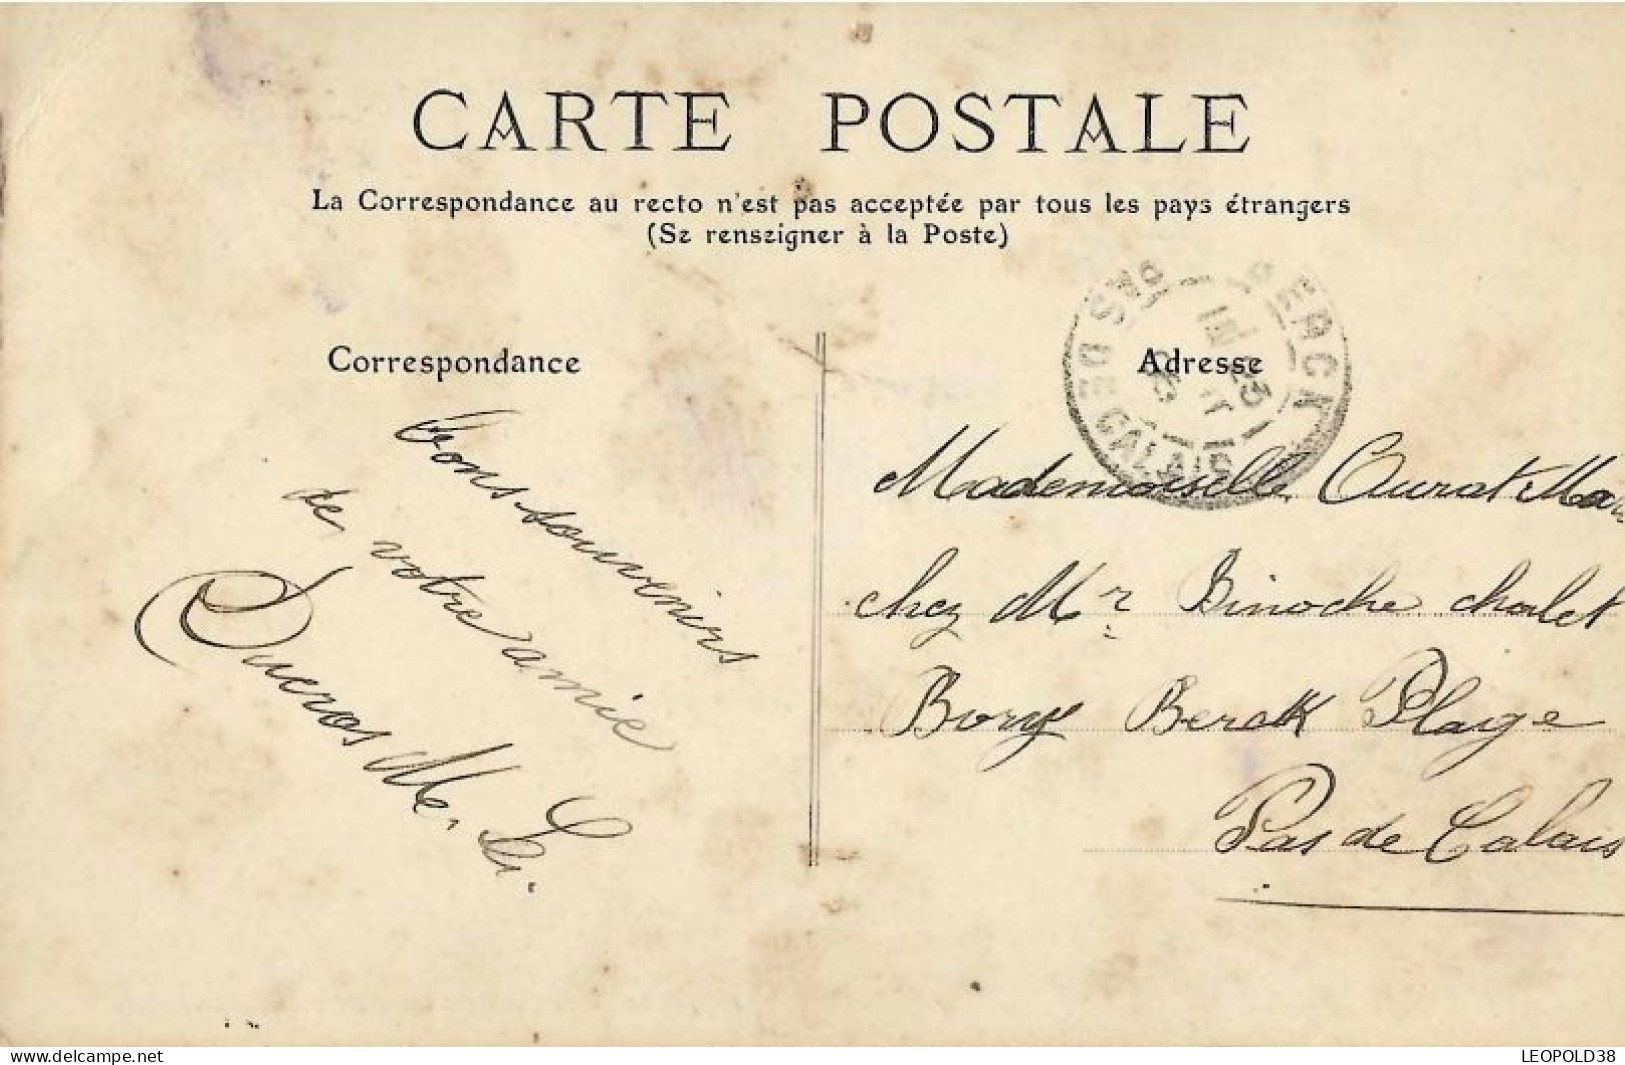 CARTE POSTALE
La Correspondance au recto n'est pas acceptée par tous les pays étrangers
(Se renseigner à la Poste)
Correspondance
Adresse
BERCK
PAS DE CALAIS
bons souvenirs
de votre amie
Ducros
Mademoiselle Ourat
chez Mr Binoche chalet
Berck Plage
Pas de Calais
delcampe.net
LEOPOLD38